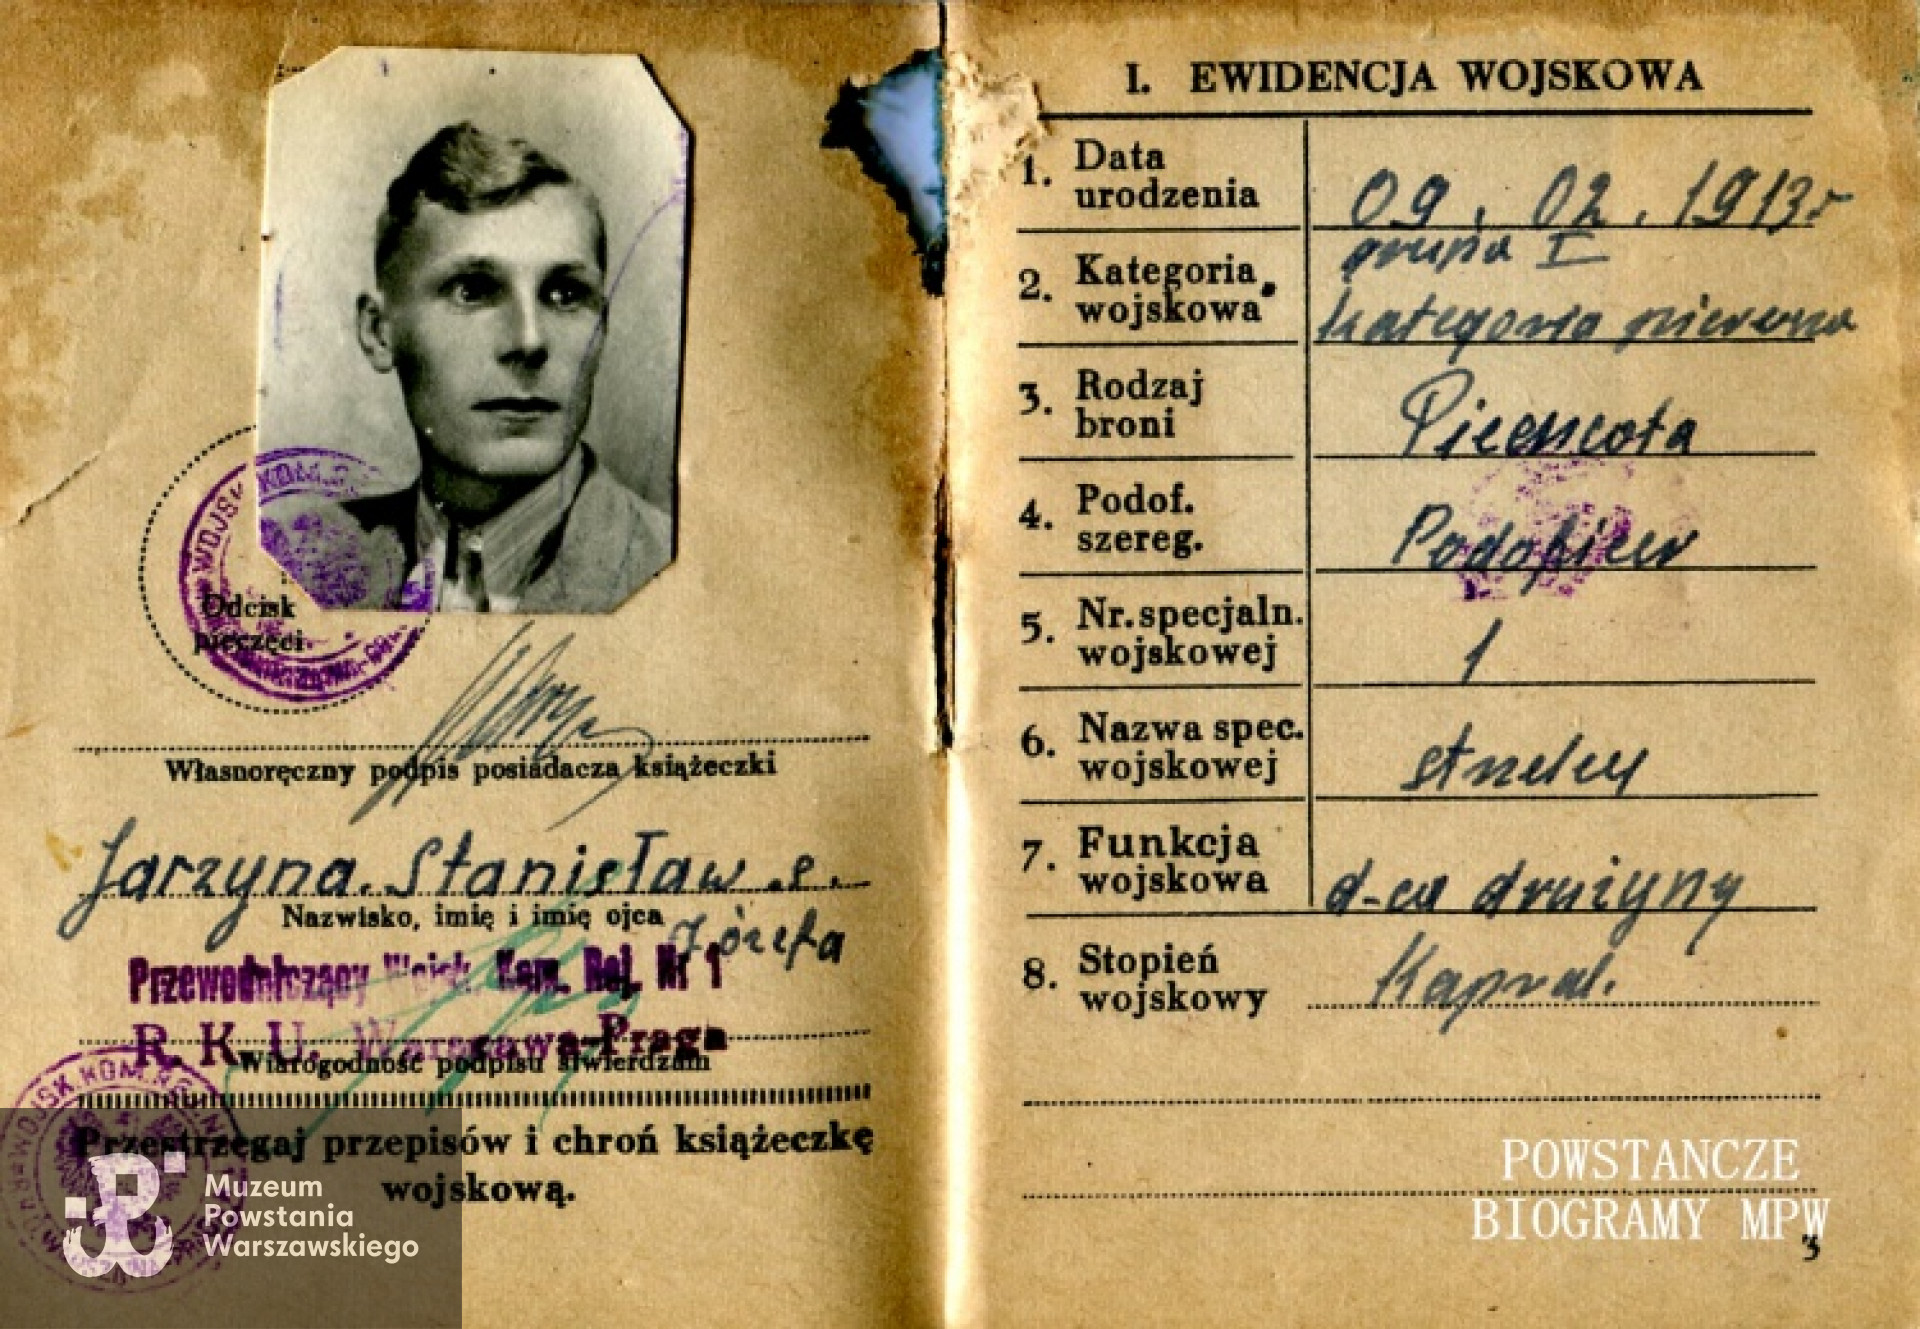 WOJSK. KOM.
Odcisk
pieczęci.
Własnoręczny podpis posiadacza książeczki
Jarzyna Stanisław s.
Nazwisko, imię i imię ojca
Józefa
Przewodniczący Wojsk. Kom. Rej. Nr 1
R. K. U. Warszawa-Praga
Wiarogodność podpisu stwierdzam
Przestrzegaj przepisów i chroń książeczkę
wojskową.
Muzeum
Powstania
Warszawskiego
I. EWIDENCJA WOJSKOWA
1. Data urodzenia 09. 02. 1913 r
grupa I
2. Kategoria wojskowa kategoria pierwsza
3. Rodzaj broni Piechota
4. Podof. szereg. Podoficer
5. Nr. specjaln. wojskowej 1
6. Nazwa spec. wojskowej strzelcy
7. Funkcja wojskowa d-ca drużyny
8. Stopień wojskowy Kapral.
POWSTAŃCZE
BIOGRAMY MPW
3